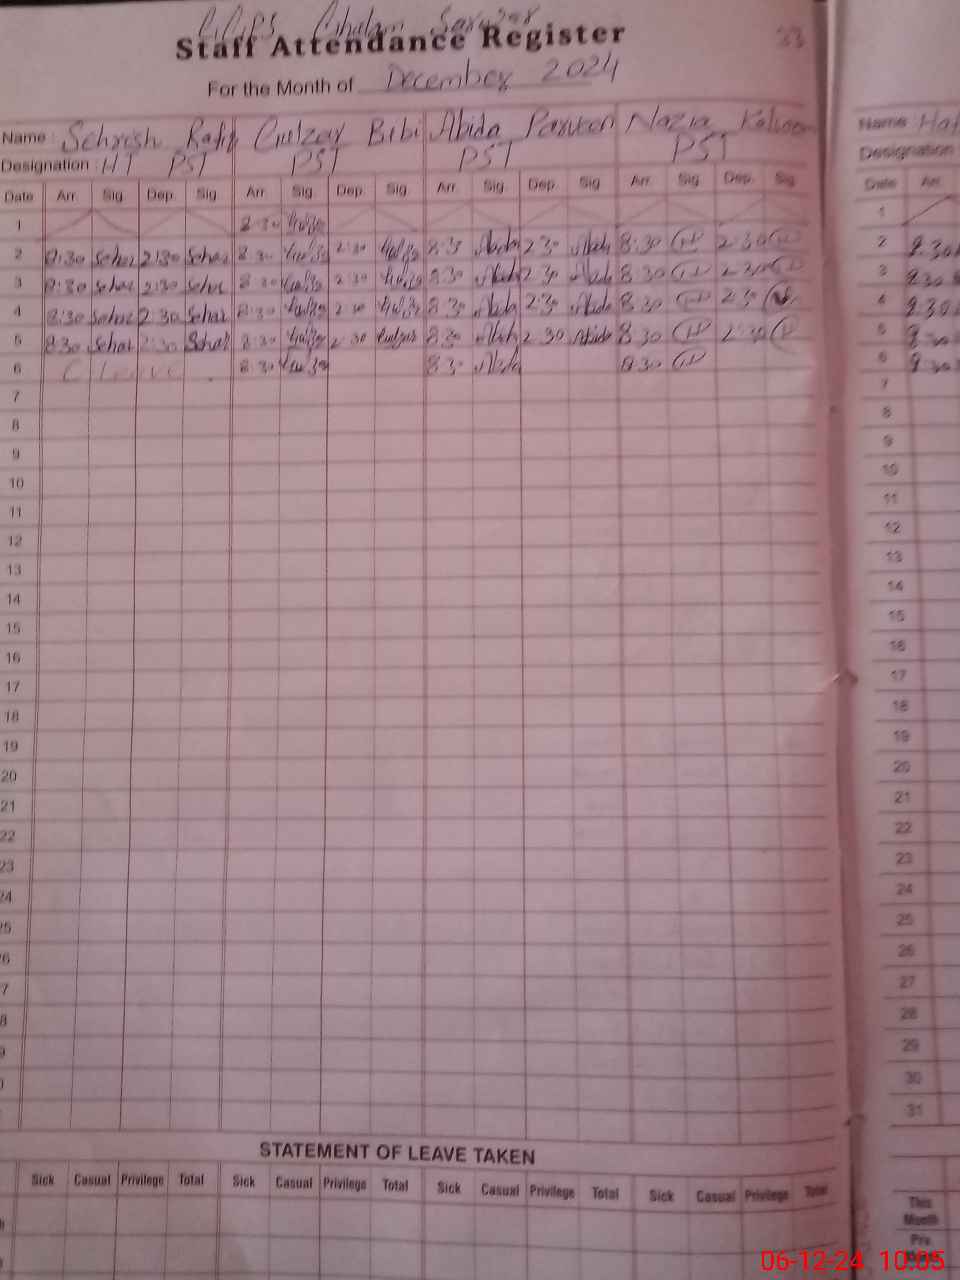 Staff Attendance Register 33
For the Month of December 2024
Name : Sehrish Rafiq Gulzar Bibi Abida Parveen Nazia Kalsoom
Designation : HT PST PST PST PST
Date Arr. Sig. Dep. Sig. Arr. Sig. Dep. Sig. Arr. Sig. Dep. Sig. Arr. Sig. Dep. Sig.
1 8:30
2 8:30 Sehar 2:30 Sehar 8:30 2:30 8:30 Abida 2:30 Abida 8:30 2:30
3 8:30 Sehar 2:30 Sehar 8:30 2:30 8:30 Abida 2:30 Abida 8:30 2:30
4 8:30 Sehar 2:30 Sehar 8:30 2:30 8:30 Abida 2:30 Abida 8:30 2:30
5 8:30 Sehar 2:30 Sehar 8:30 2:30 8:30 Abida 2:30 Abida 8:30 2:30
6 C Leave 8:30 8:30 Abida 8:30
7
8
9
10
11
12
13
14
15
16
17
18
19
20
21
22
23
24
25
26
27
28
29
STATEMENT OF LEAVE TAKEN
Sick Casual Privilege Total Sick Casual Privilege Total Sick Casual Privilege Total Sick Casual Privilege Total
Name
Designation
Date Arr.
1
2 8:30
3 8:30
4 8:30
5 8:30
6 8:30
7
8
9
10
11
12
13
14
15
16
17
18
19
20
21
22
23
24
25
26
27
28
29
30
31
This
Month
Prv.
06-12-24 10:05